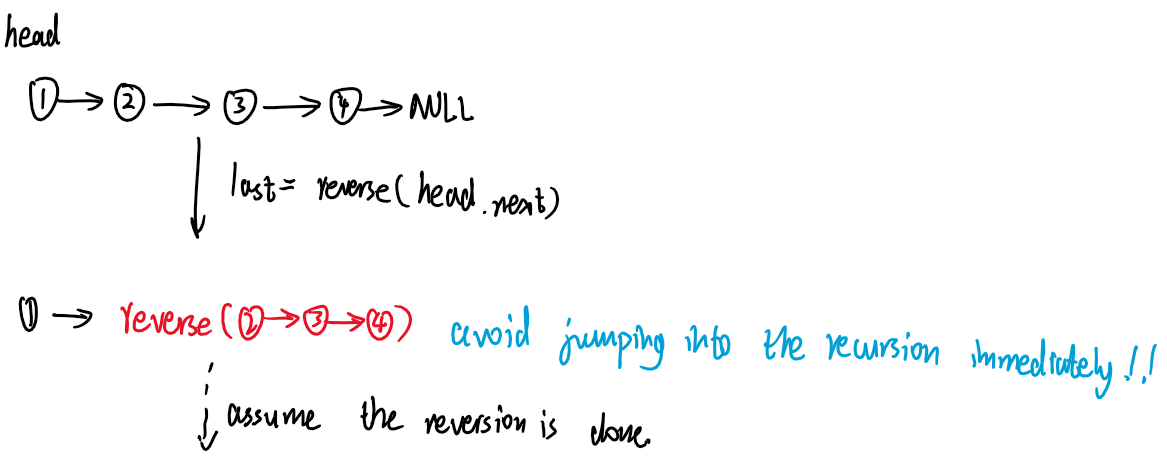 head
① → ② → ③ → ④ → NULL
last = reverse(head.next)
① → reverse(② → ③ → ④) avoid jumping into the recursion immediately!!
assume the reversion is done.